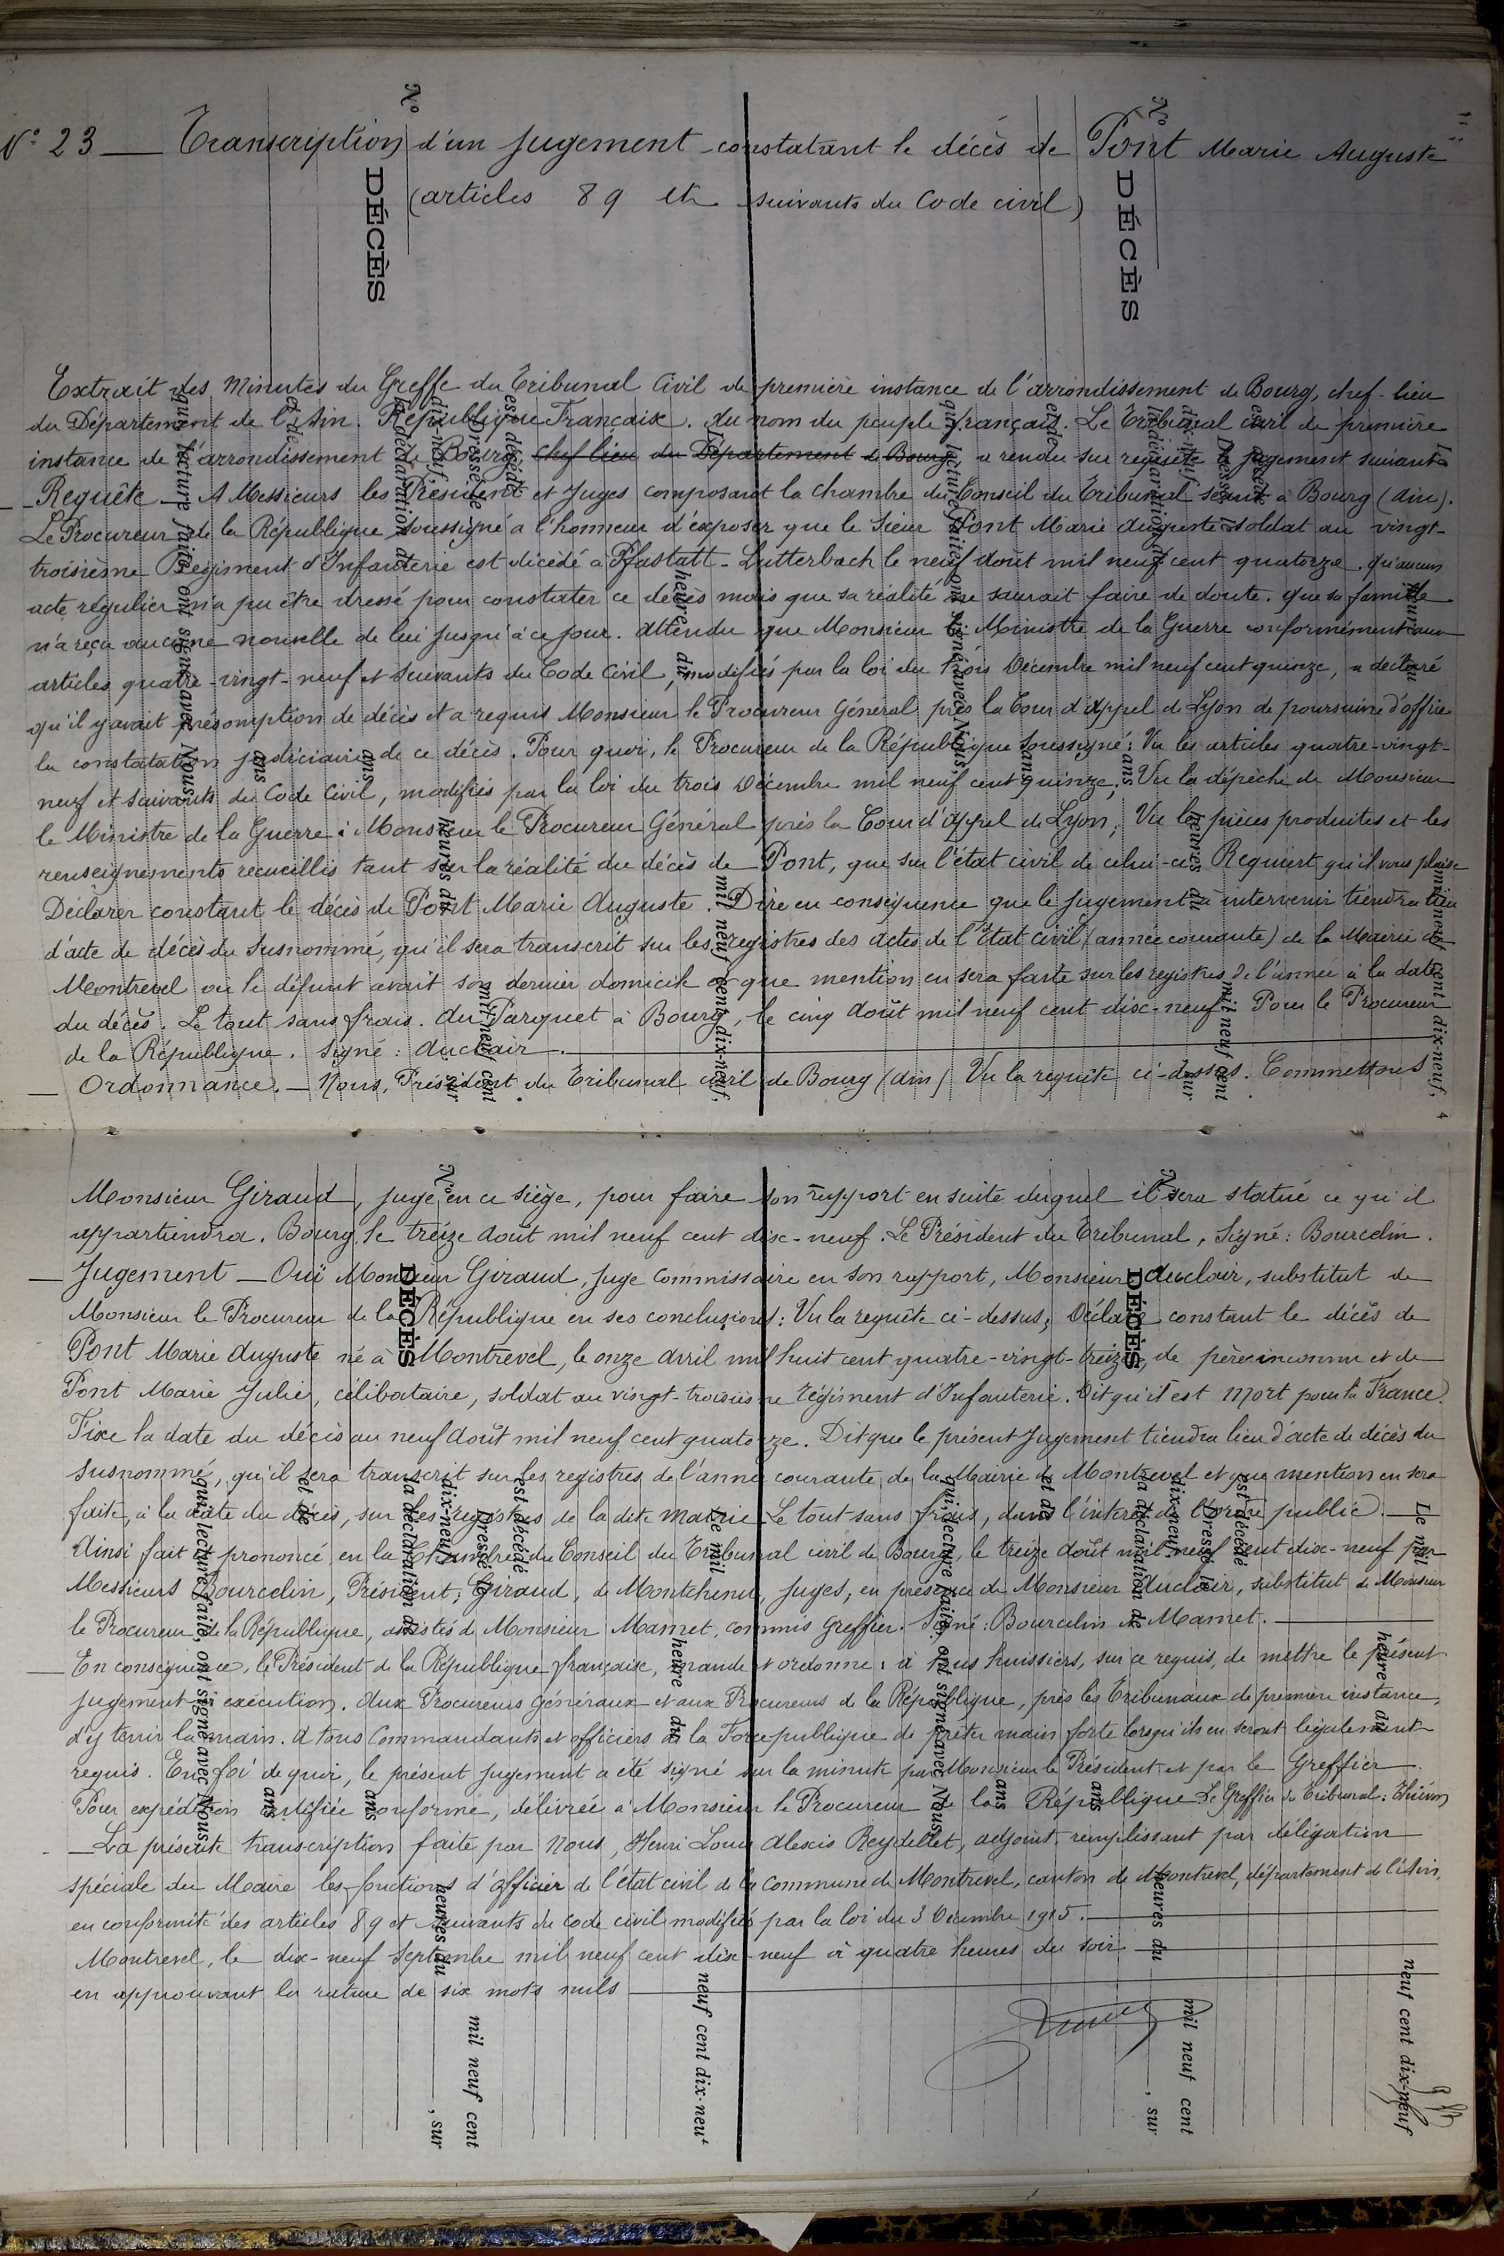 N° 23 — Transcription d'un jugement constatant le décès de Pont Marie Auguste
(articles 89 et suivants du Code civil)
Extrait des Minutes du Greffe du Tribunal Civil de première instance de l'arrondissement de Bourg, chef-lieu
du Département de l'Ain. République Française. Au nom du peuple français. Le Tribunal civil de première
instance de l'arrondissement de Bourg chef lieu du Département de Bourg a rendu sur requête le jugement suivant
— Requête — A Messieurs les Président et Juges composant la Chambre du Conseil du Tribunal séant à Bourg (Ain).
Le Procureur de la République soussigné a l'honneur d'exposer que le sieur Pont Marie Auguste soldat au vingt-
troisième Régiment d'Infanterie est décédé à Pfastatt-Lutterbach le neuf Août mil neuf cent quatorze. qu'aucun
acte régulier n'a pu être dressé pour constater ce décès mais que sa réalité ne saurait faire de doute. que sa famille
n'a reçu aucune nouvelle de lui jusqu'à ce jour. Attendu que Monsieur le Ministre de la Guerre conformément aux
articles quatre-vingt-neuf et suivants du Code Civil, modifiés par la loi du trois Décembre mil neuf cent quinze, a déclaré
qu'il y avait présomption de décès et a requis Monsieur le Procureur Général près la Cour d'Appel de Lyon de poursuivre d'office
la constatation judiciaire de ce décès. Pour quoi, le Procureur de la République soussigné : Vu les articles quatre-vingt-
neuf et suivants du Code Civil, modifiés par la loi du trois Décembre mil neuf cent quinze; Vu la dépêche de Monsieur
le Ministre de la Guerre à Monsieur le Procureur Général près la Cour d'Appel de Lyon; Vu les pièces produites et les
renseignements recueillis tant sur la réalité du décès de Pont, que sur l'état civil de celui-ci Requiert qu'il vous plaise
Déclarer constant le décès de Pont Marie Auguste. Dire en conséquence que le jugement à intervenir tiendra lieu
d'acte de décès du susnommé, qu'il sera transcrit sur les registres des actes de l'Etat civil (année courante) de la Mairie de
Montrevel où le défunt avait son dernier domicile et que mention en sera faite sur les registres de l'année à la date
du décès. Le tout sans frais. Au Parquet à Bourg, le cinq Août mil neuf cent dix-neuf. Pour le Procureur
de la République. Signé : Auclair.
— Ordonnance. — Nous, Président du Tribunal civil de Bourg (Ain) Vu la requête ci-dessus. Commettons
Monsieur Giraud, juge en ce siège, pour faire son rapport en suite duquel il sera statué ce qu'il
appartiendra. Bourg, le treize Août mil neuf cent dix-neuf. Le Président du Tribunal, Signé : Bourcelin.
— Jugement — Ouï Monsieur Giraud, Juge Commissaire en son rapport, Monsieur Auclair, substitut de
Monsieur le Procureur de la République en ses conclusions : Vu la requête ci-dessus, Déclare constant le décès de
Pont Marie Auguste né à Montrevel, le onze Avril mil huit cent quatre-vingt-treize, de père inconnu et de
Pont Marie Julie, célibataire, soldat au vingt-troisième Régiment d'Infanterie. Dit qu'il est Mort pour la France.
Fixe la date du décès au neuf Août mil neuf cent quatorze. Dit que le présent jugement tiendra lieu d'acte de décès du
susnommé, qu'il sera transcrit sur les registres de l'année courante de la Mairie de Montrevel et que mention en sera
faite, à la date du décès, sur les registres de la dite Mairie. Le tout sans frais, dans l'intérêt de l'ordre public.
Ainsi fait et prononcé en la Chambre du Conseil du Tribunal civil de Bourg, le treize Août mil neuf cent dix-neuf par
Messieurs Bourcelin, Président; Giraud, de Montchenu, Juges, en présence de Monsieur Auclair, substitut de Monsieur
le Procureur de la République, assistés de Monsieur Mamet, commis greffier. Signé : Bourcelin et Mamet.
— En conséquence, le Président de la République française, mande et ordonne : à tous huissiers, sur ce requis, de mettre le présent
jugement à exécution. Aux Procureurs Généraux et aux Procureurs de la République, près les Tribunaux de première instance,
d'y tenir la main. A tous Commandants et officiers de la Force publique de prêter main forte lorsqu'ils en seront légalement
requis. En foi de quoi, le présent jugement a été signé sur la minute par Monsieur le Président et par le Greffier.
Pour expédition certifiée conforme, délivrée à Monsieur le Procureur de la République Le Greffier du Tribunal :
— La présente transcription faite par Nous, Henri Louis Alexis Reydellet, adjoint, remplissant par délégation
spéciale du Maire les fonctions d'officier de l'état civil de la Commune de Montrevel, canton de Montrevel, département de l'Ain,
en conformité des articles 89 et suivants du code civil modifiés par la loi du 3 Décembre 1915.
Montrevel, le dix-neuf Septembre mil neuf cent dix-neuf à quatre heures du soir
en approuvant la rature de six mots nuls
N°
DÉCÈS
N°
DÉCÈS
N°
DÉCÈS
N°
DÉCÈS